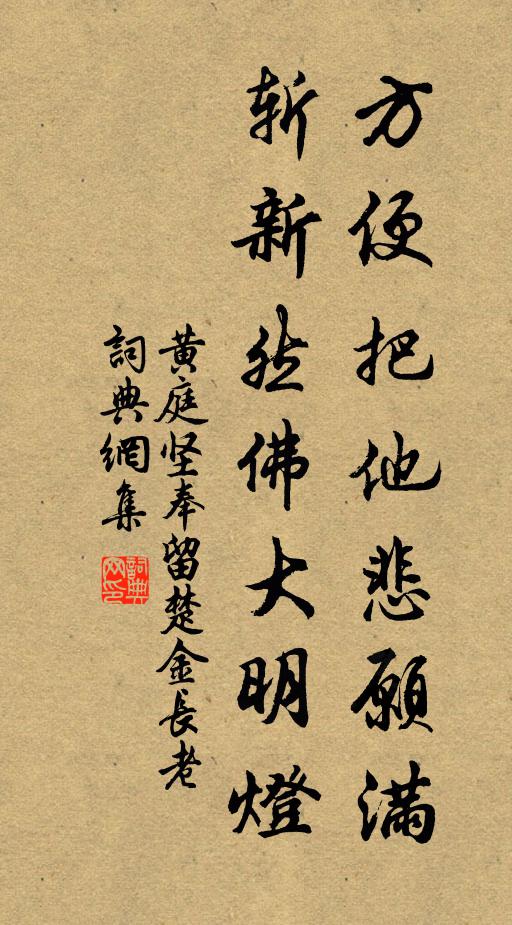 方便把他悲願滿
斬新然佛大明燈
黃庭坚奉留楚金長老
詞典網集
詞典网印